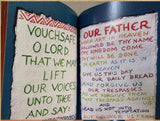 VOUCHSAFE
O LORD
THAT WE MAY
LIFT
OUR VOICES
UNTO THEE
AND SAY:
OUR FATHER
ART IN HEAVEN
HALLOWED BE THY NAME
THY KINGDOM COME
THY WILL BE DONE
ON EARTH AS IT IS IN
HEAVEN
GIVE US THIS DAY
OUR DAILY BREAD
FORGIVE US
OUR TRESPASSES
AS WE FORGIVE
THOSE THAT
TRESPASS
AGAINST US
LEAD US NOT INTO